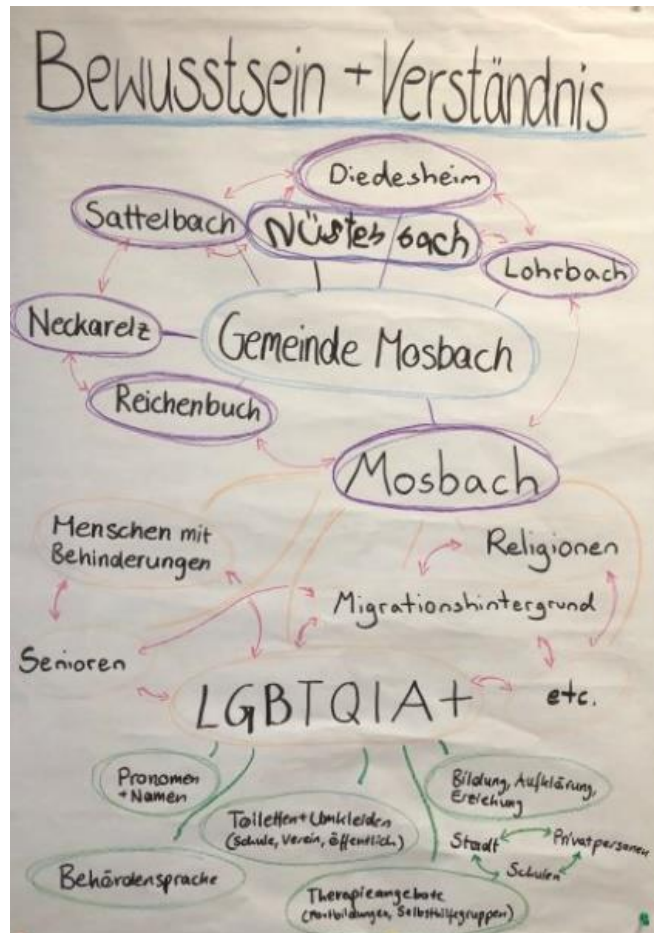 Bewusstsein + Verständnis
Diedesheim
Sattelbach
Nüstenbach
Lohrbach
Neckarelz
Gemeinde Mosbach
Reichenbuch
Mosbach
Menschen mit
Behinderungen
Religionen
Migrationshintergrund
Senioren
LGBTQIA+
etc.
Pronomen
+ Namen
Toiletten + Umkleiden
(Schule, Verein, öffentlich)
Bildung, Aufklärung,
Erziehung
Stadt
Privatpersonen
Schulen
Behördensprache
Therapieangebote
(Fortbildungen, Selbsthilfegruppen)